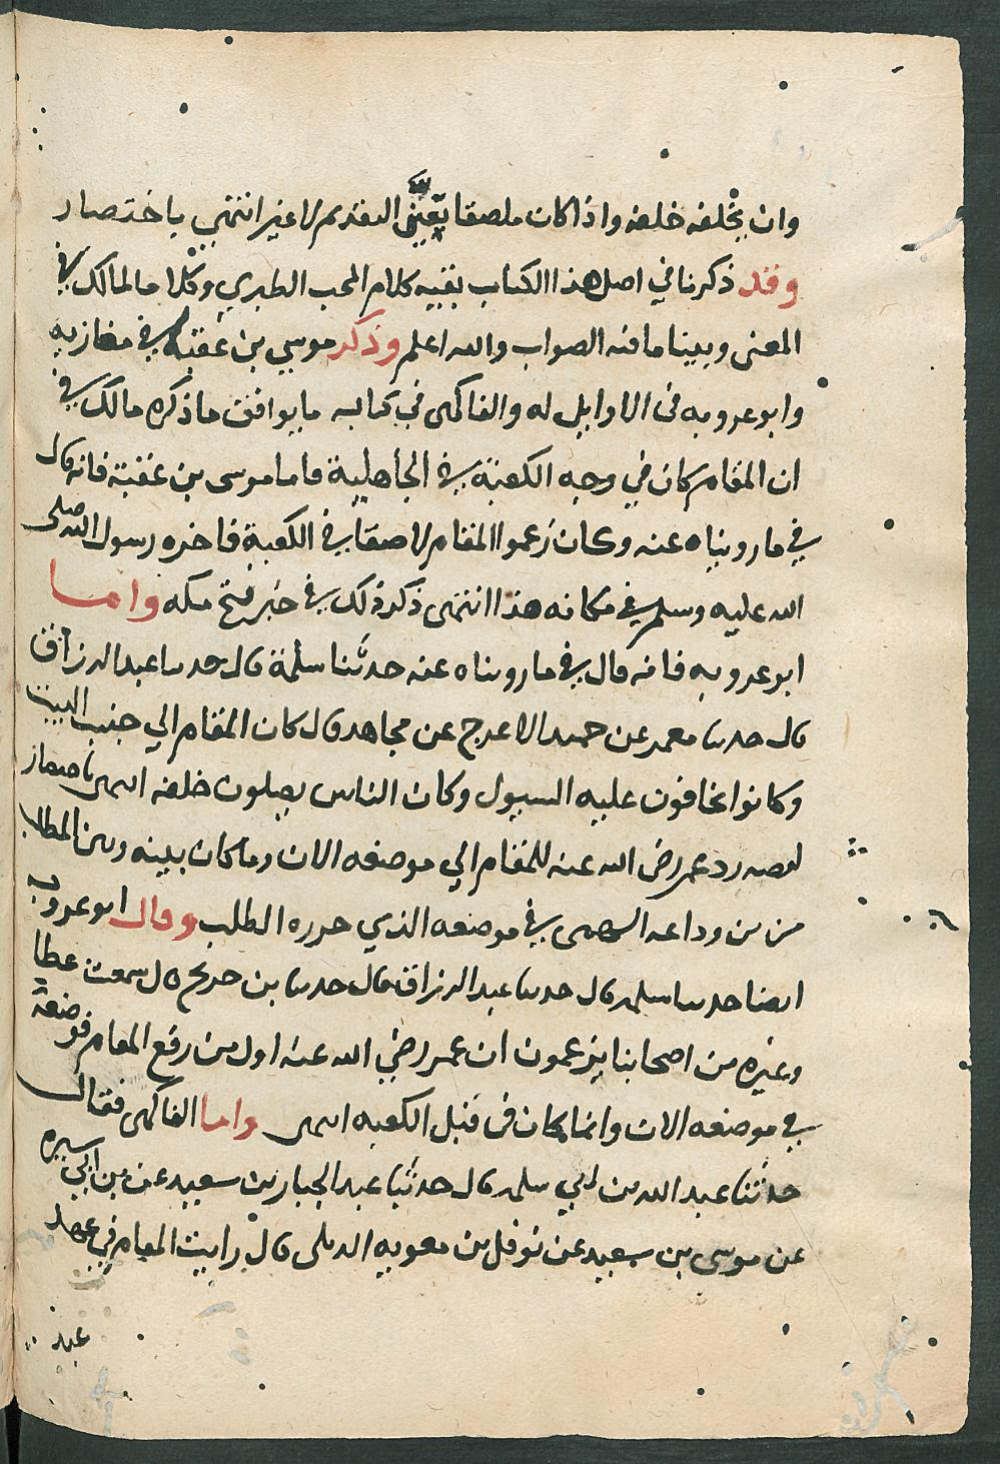 وان يخلفه خلفه واذا كان ملصقا يعين التقدم لا غير انتهي باختصار
وقد ذكرنا في اصل هذا الكتاب بقية كلام المحب الطبري وكلاما لمالك في
المعنى وبينا ما فيه الصواب والله اعلم وذكر موسي بن عقبة في مغازيه
وابو عروبه في الاوايل له والفاكهى في كتابه ما يوافق ما ذكره مالك في
ان المقام كان في وجه الكعبة في الجاهلية فاما موسى بن عقبة فانه قال
في ما رويناه عنه وكان زعموا المقام لاصقا في الكعبة فاخره رسول الله صلى
الله عليه وسلم في مكانه هذا انتهى ذكر ذلك في خبر فتح مكه واما
ابو عروبه فانه قال في ما رويناه عنه حدثنا سلمة قال حدثنا عبد الرزاق
قال حدثنا معمر عن حميد الاعرج عن مجاهد قال كان المقام الي جنب البيت
وكانوا يخافون عليه السيول وكان الناس يصلون خلفه انتهى باختصار
لقصه رد عمر رضي الله عنه للمقام الي موضعه الان وما كان بينه وبين المطلب
من بن وداعه السهمى في موضعه الذي حرره المطلب وقال ابو عروبه
ايضا حدثنا سلمه قال حدثنا عبد الرزاق قال حدثنا بن جريج قال سمعت عطا
وغيره من اصحابنا يزعمون ان عمر رضي الله عنه اول من رفع المقام فوضعه
في موضعه الان وانما كان في قبل الكعبه انتهى واما الفاكهى فقال
حدثنا عبد الله بن ابي سلمه قال حدثنا عبد الجبار بن سعيد عن بن ابي سبره
عن موسى بن سعيد عن نوفل بن معويه الديلى قال رايت المقام في عهد
عبد